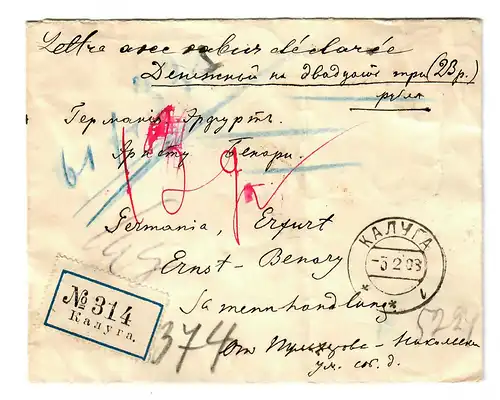 Lettre avec valeur déclarée
Денежный на двадцать три (23 р.)
рубля
Германія Эрфуртъ.
Эрнсту Бенари.
61
12 9
Germania, Erfurt
Ernst-Benary
Samenhandlung
КАЛУГА
-5.2.08
* * 1
№ 314
Калуга.
374
5224
От
ум. соб. д.